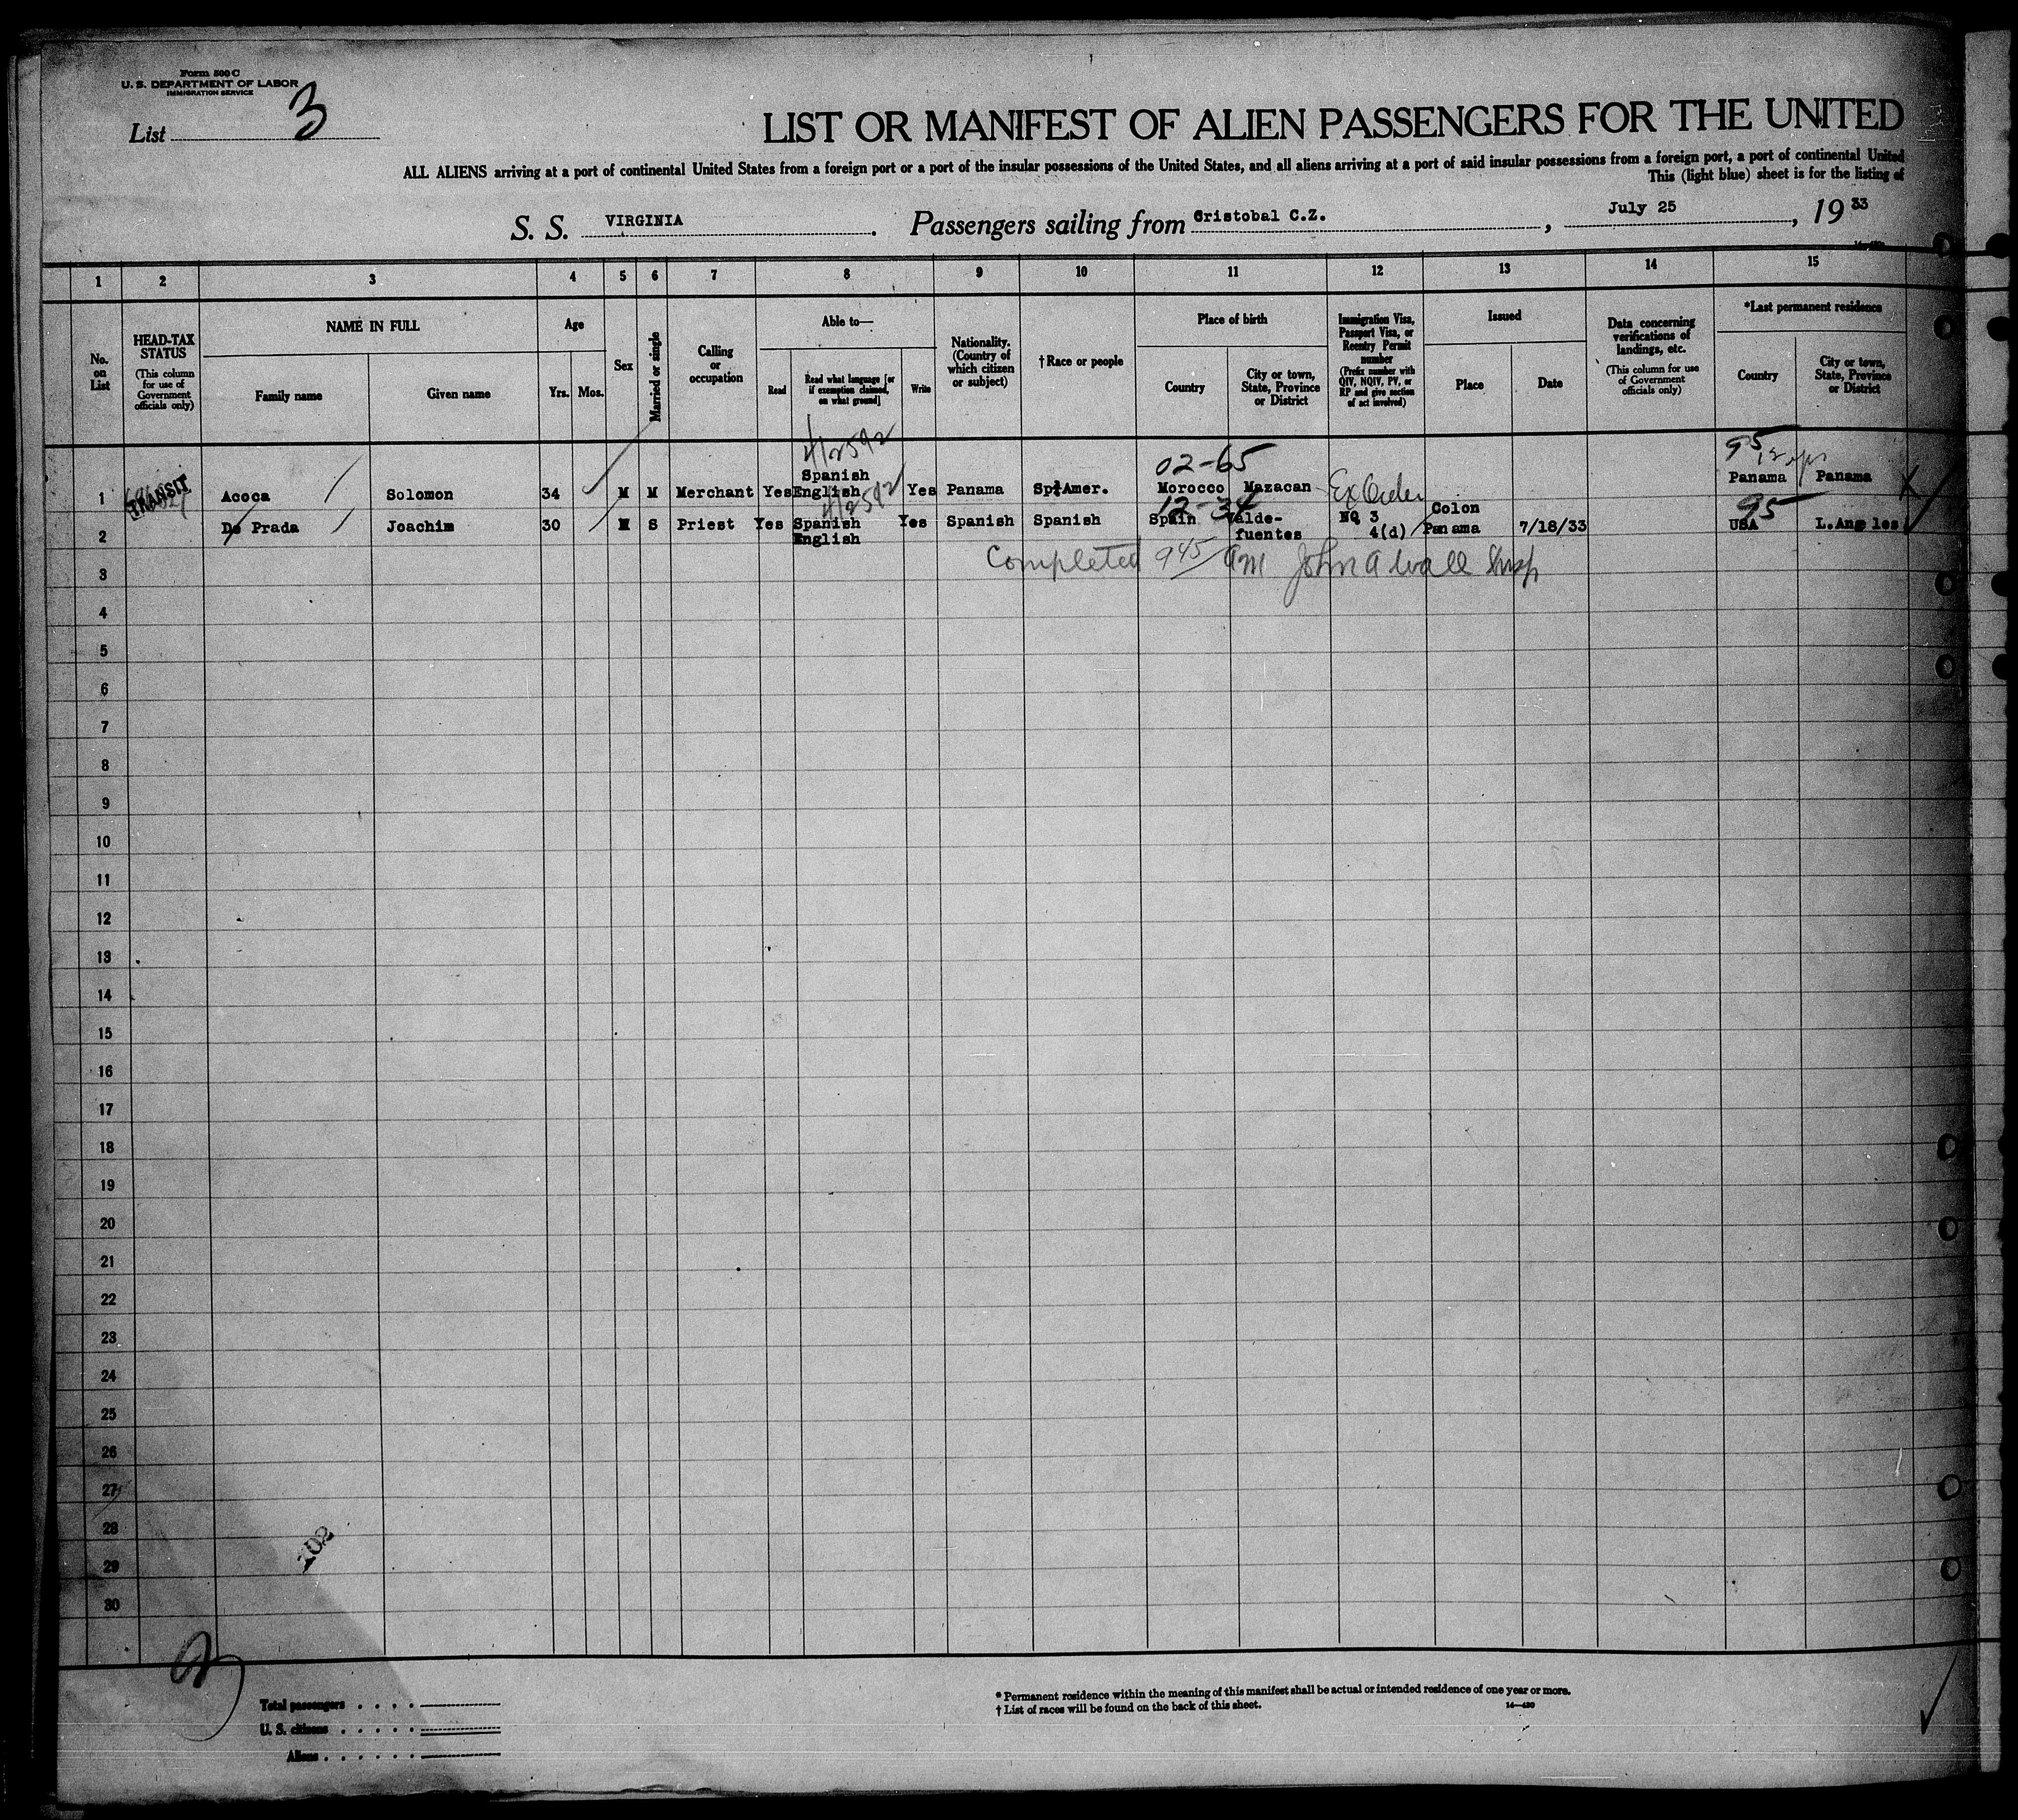 Form 500 C
U. S. DEPARTMENT OF LABOR
IMMIGRATION SERVICE
List 3
LIST OR MANIFEST OF ALIEN PASSENGERS FOR THE UNITED
ALL ALIENS arriving at a port of continental United States from a foreign port or a port of the insular possessions of the United States, and all aliens arriving at a port of said insular possessions from a foreign port, a port of continental United
This (light blue) sheet is for the listing of
S. S. VIRGINIA. Passengers sailing from Cristobal C.Z., July 25, 19 33
1 2 3 4 5 6 7 8 9 10 11 12 13 14 15
No. on List
HEAD-TAX STATUS (This column for use of Government officials only)
NAME IN FULL
Family name
Given name
Age
Yrs. Mos.
Sex
Married or single
Calling or occupation
Able to—
Read
Read what language [or if exemption claimed, on what ground]
Write
Nationality. (Country of which citizen or subject)
†Race or people
Place of birth
Country
City or town, State, Province or District
Immigration Visa, Passport Visa, or Reentry Permit number (Prefix number with QIV, NQIV, PV, or RP and give section of act involved)
Issued
Place
Date
Data concerning verifications of landings, etc. (This column for use of Government officials only)
*Last permanent residence
Country
City or town, State, Province or District
4/2592 02-65 95
1 TRANSIT Acoca Solomon 34 M M Merchant Yes Spanish English Yes Panama Sp. Amer. Morocco Mazacan Ex Order Panama Panama X
4/2592 12-34 95
2 De Prada Joachim 30 M S Priest Yes Spanish English Yes Spanish Spanish Spain Valde-fuentes NQ 3 4(d) Colon Panama 7/18/33 USA L.Angeles
3 Completed 945 am John A Wall Insp
4
5
6
7
8
9
10
11
12
13
14
15
16
17
18
19
20
21
22
23
24
25
26
27
28
29
30
102
2
Total passengers . . . .
U. S. citizens . . . . .
Aliens . . . . . .
* Permanent residence within the meaning of this manifest shall be actual or intended residence of one year or more.
† List of races will be found on the back of this sheet.
14—430